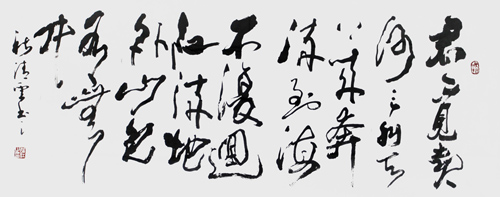 君不見黄
河之水天
上来奔
流到海
不復迴
江流地
外山色
有無
中
清雲书